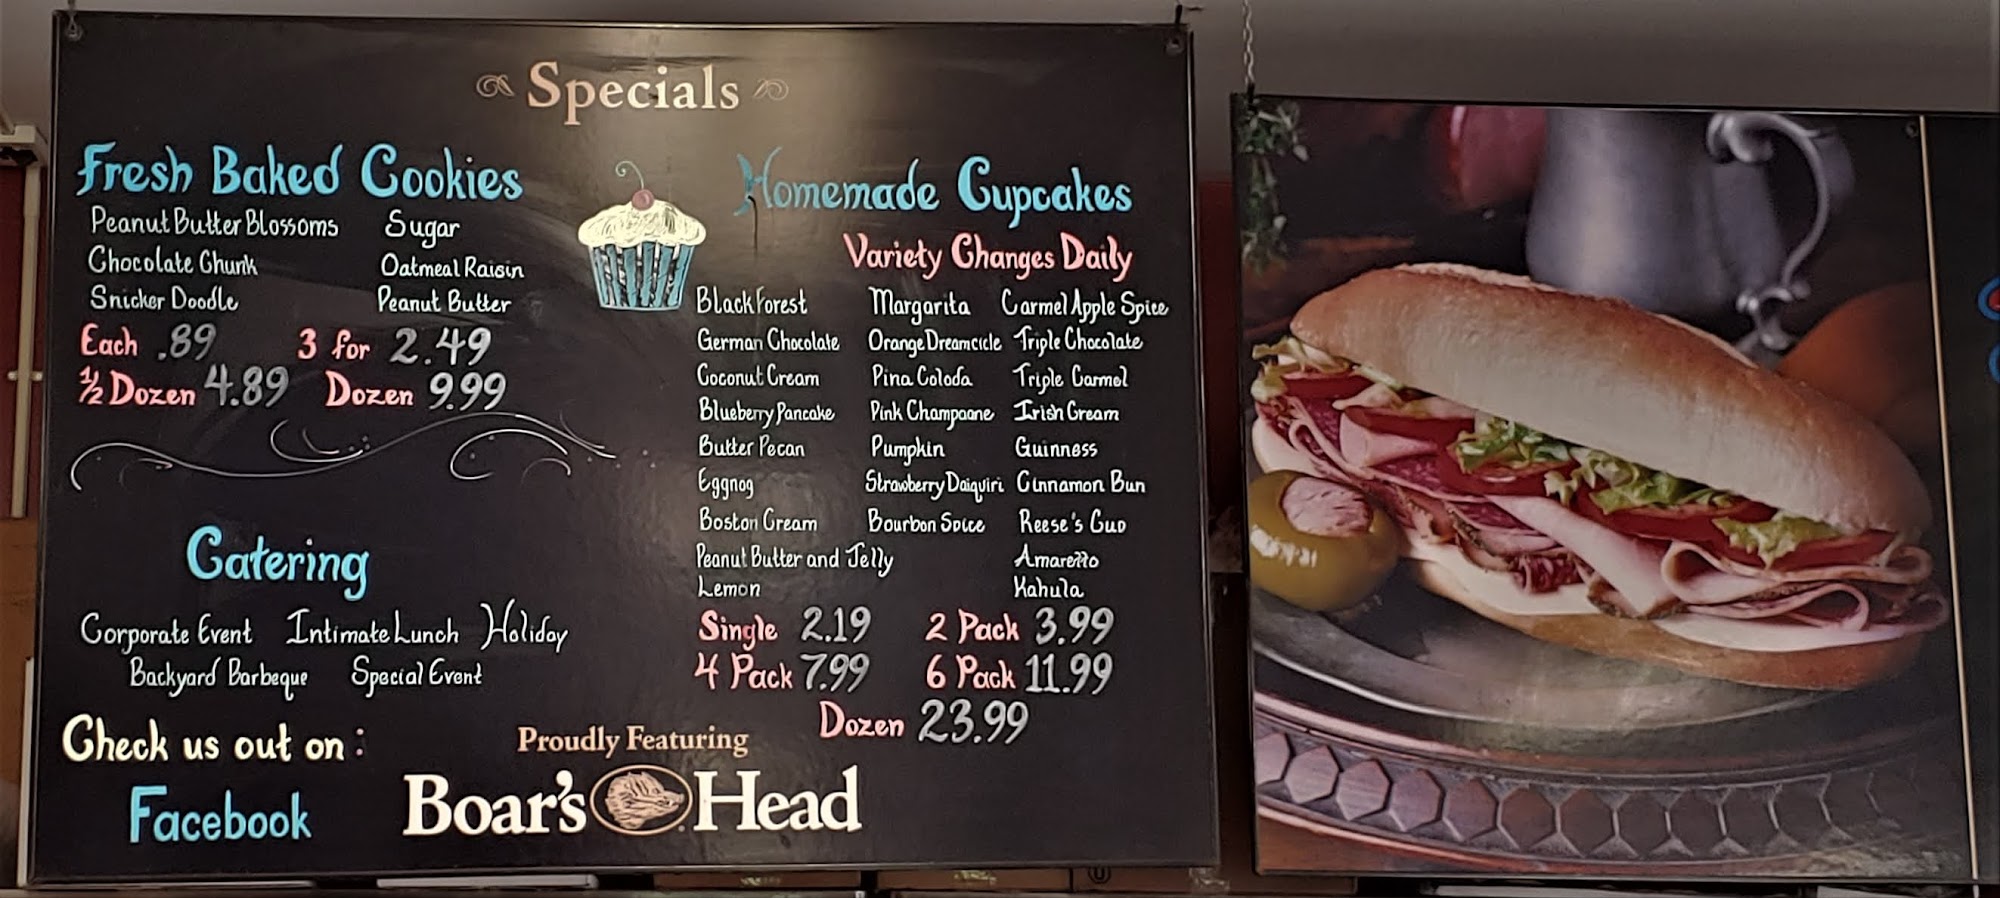 Specials
Fresh Baked Cookies
Peanut Butter Blossoms Sugar
Chocolate Chunk Oatmeal Raisin
Snicker Doodle Peanut Butter
Each .89 3 for 2.49
½ Dozen 4.89 Dozen 9.99
Catering
Corporate Event Intimate Lunch Holiday
Backyard Barbeque Special Event
Check us out on:
Facebook
Homemade Cupcakes
Variety Changes Daily
Black Forest Margarita Carmel Apple Spice
German Chocolate Orange Dreamcicle Triple Chocolate
Coconut Cream Pina Colada Triple Carmel
Blueberry Pancake Pink Champagne Irish Cream
Butter Pecan Pumpkin Guinness
Eggnog Strawberry Daiquiri Cinnamon Bun
Boston Cream Bourbon Spice Reese's Cup
Peanut Butter and Jelly Amaretto
Lemon Kahula
Single 2.19 2 Pack 3.99
4 Pack 7.99 6 Pack 11.99
Dozen 23.99
Proudly Featuring
Boar's Head